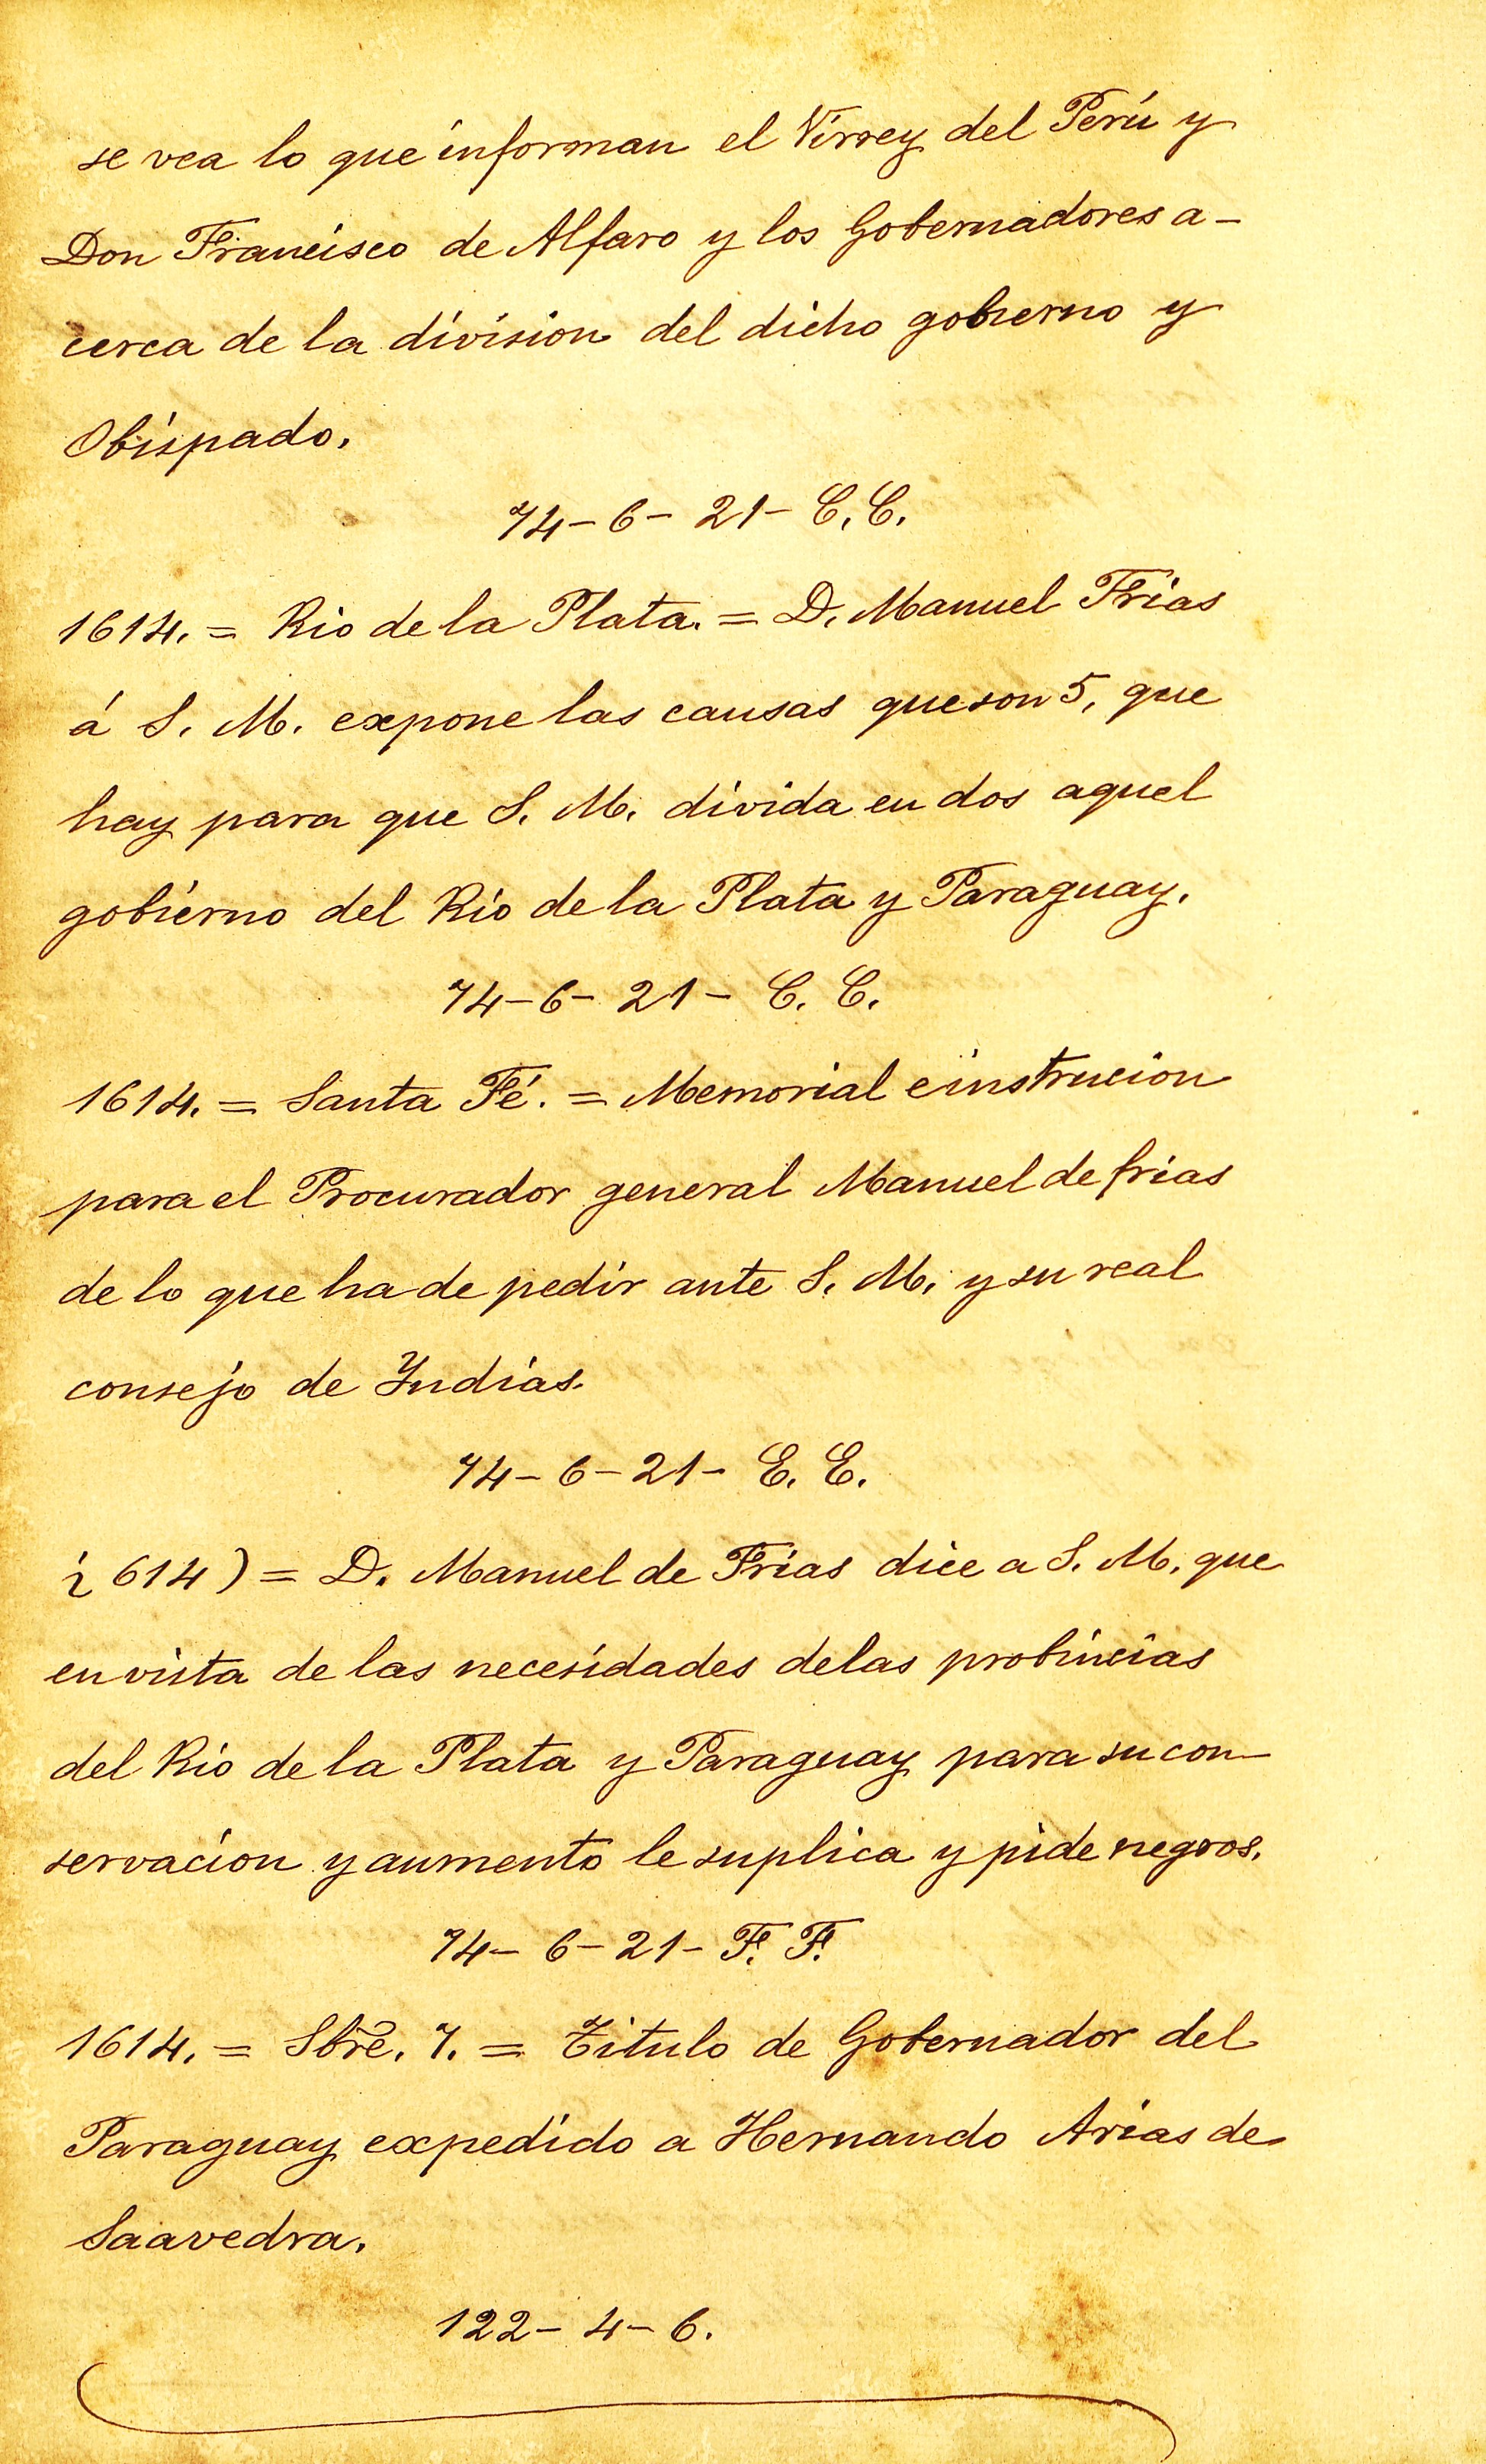 se vea lo que informan el Virrey del Perú y
Don Francisco de Alfaro y los Gobernadores a-
cerca de la division del dicho gobierno y
Obispado.
74-6-21-C.C.
1614.= Rio de la Plata.= D. Manuel Frias
á S. M. expone las causas que son 5, que
hay para que S. M. divida en dos aquel
gobierno del Rio de la Plata y Paraguay.
74-6-21- C. C.
1614.= Santa Fé.= Memorial e instrucion
para el Procurador general Manuel de frias
de lo que ha de pedir ante S. M. y su real
consejo de Indias.
74-6-21- E. E.
¿ 614) = D. Manuel de Frias dice a S. M. que
en vista de las necesidades de las probincias
del Rio de la Plata y Paraguay para su con-
servacion y aumento le suplica y pide negros.
74-6-21- F. F.
1614.= Sbre. 7.= Titulo de Gobernador del
Paraguay expedido a Hernando Arias de
Saavedra.
122-4-6.